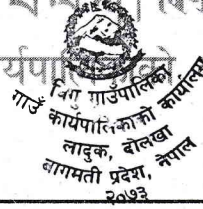 र्यपा
विगु गाउँपालिका
गाउँ कार्यपालिकाको कार्यालय
लादुक, दोलखा
बागमती प्रदेश, नेपाल
२०७३